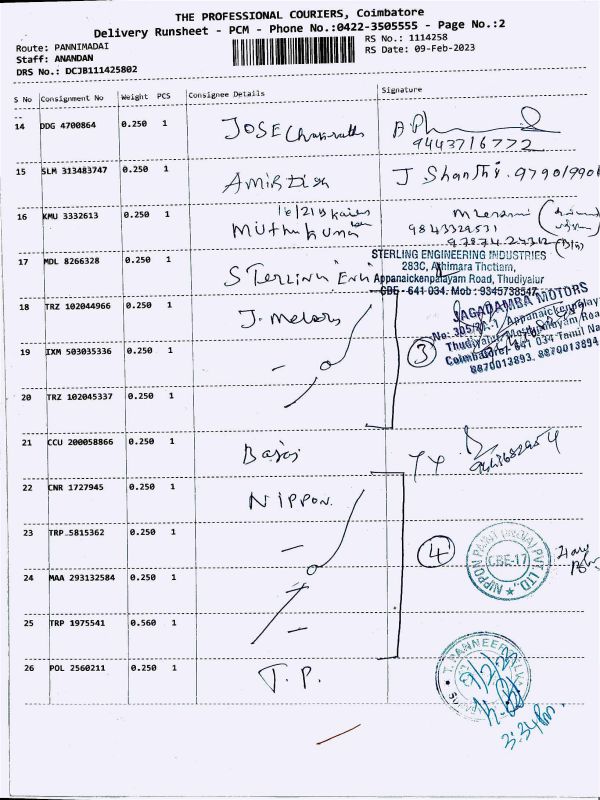 THE PROFESSIONAL COURIERS, Coimbatore
Delivery Runsheet - PCM - Phone No.:0422-3505555 - Page No.:2
Route: PANNIMADAI
RS No.: 1114258
Staff: ANANDAN
RS Date: 09-Feb-2023
DRS No.: DCJB111425802
S No Consignment No Weight PCS Consignee Details Signature
14 DDG 4700864 0.250 1 JOSE
9443716772
15 SLM 313483747 0.250 1 J Shanthi
16 KMU 3332613 0.250 1 Muthukumar
9843329531
17 MDL 8266328 0.250 1
STERLING ENGINEERING INDUSTRIES
283C, Athimara Thottam,
Appanaickenpalayam Road, Thudiyalur
CBE - 641 034. Mob : 9345738547
18 TRZ 102044966 0.250 1 J. Motors
JAGADAMBA MOTORS
Thudiyalur,
Coimbatore - 641 034 Tamil Na
8870013893, 8870013894
19 IXM 503035336 0.250 1 3
20 TRZ 102045337 0.250 1
21 CCU 200058866 0.250 1 Bajaj
22 CNR 1727945 0.250 1 NIPPON.
23 TRP 5815362 0.250 1
4
NIPPON PAINT (INDIA) PVT. LTD.,
CBE-17
24 MAA 293132584 0.250 1
25 TRP 1975541 0.560 1
26 POL 2560211 0.250 1 T.P.
9/2/23